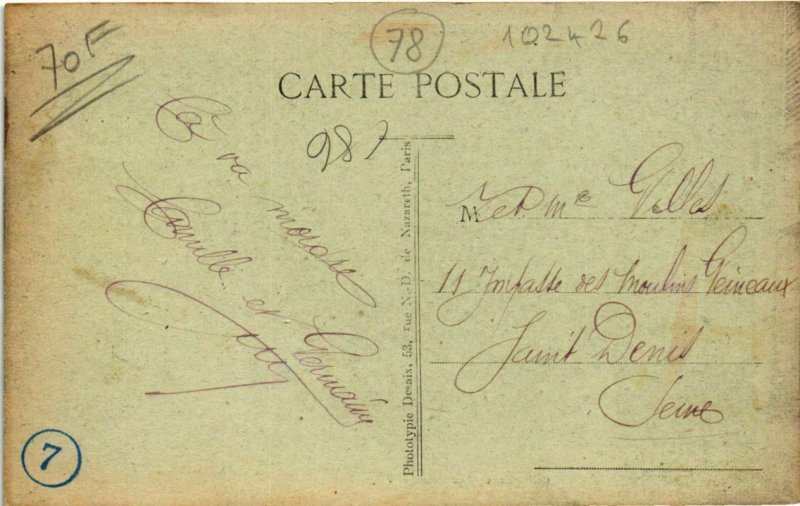 70F
78
102426
CARTE POSTALE
987
Ça va mordre
Camille et Germaine
Phototypie Desaix, 53, rue N.-D. de Nazareth, Paris
M. et Me Gilles
11 Impasse des Moulins Gémeaux
Saint Denis
Seine
7